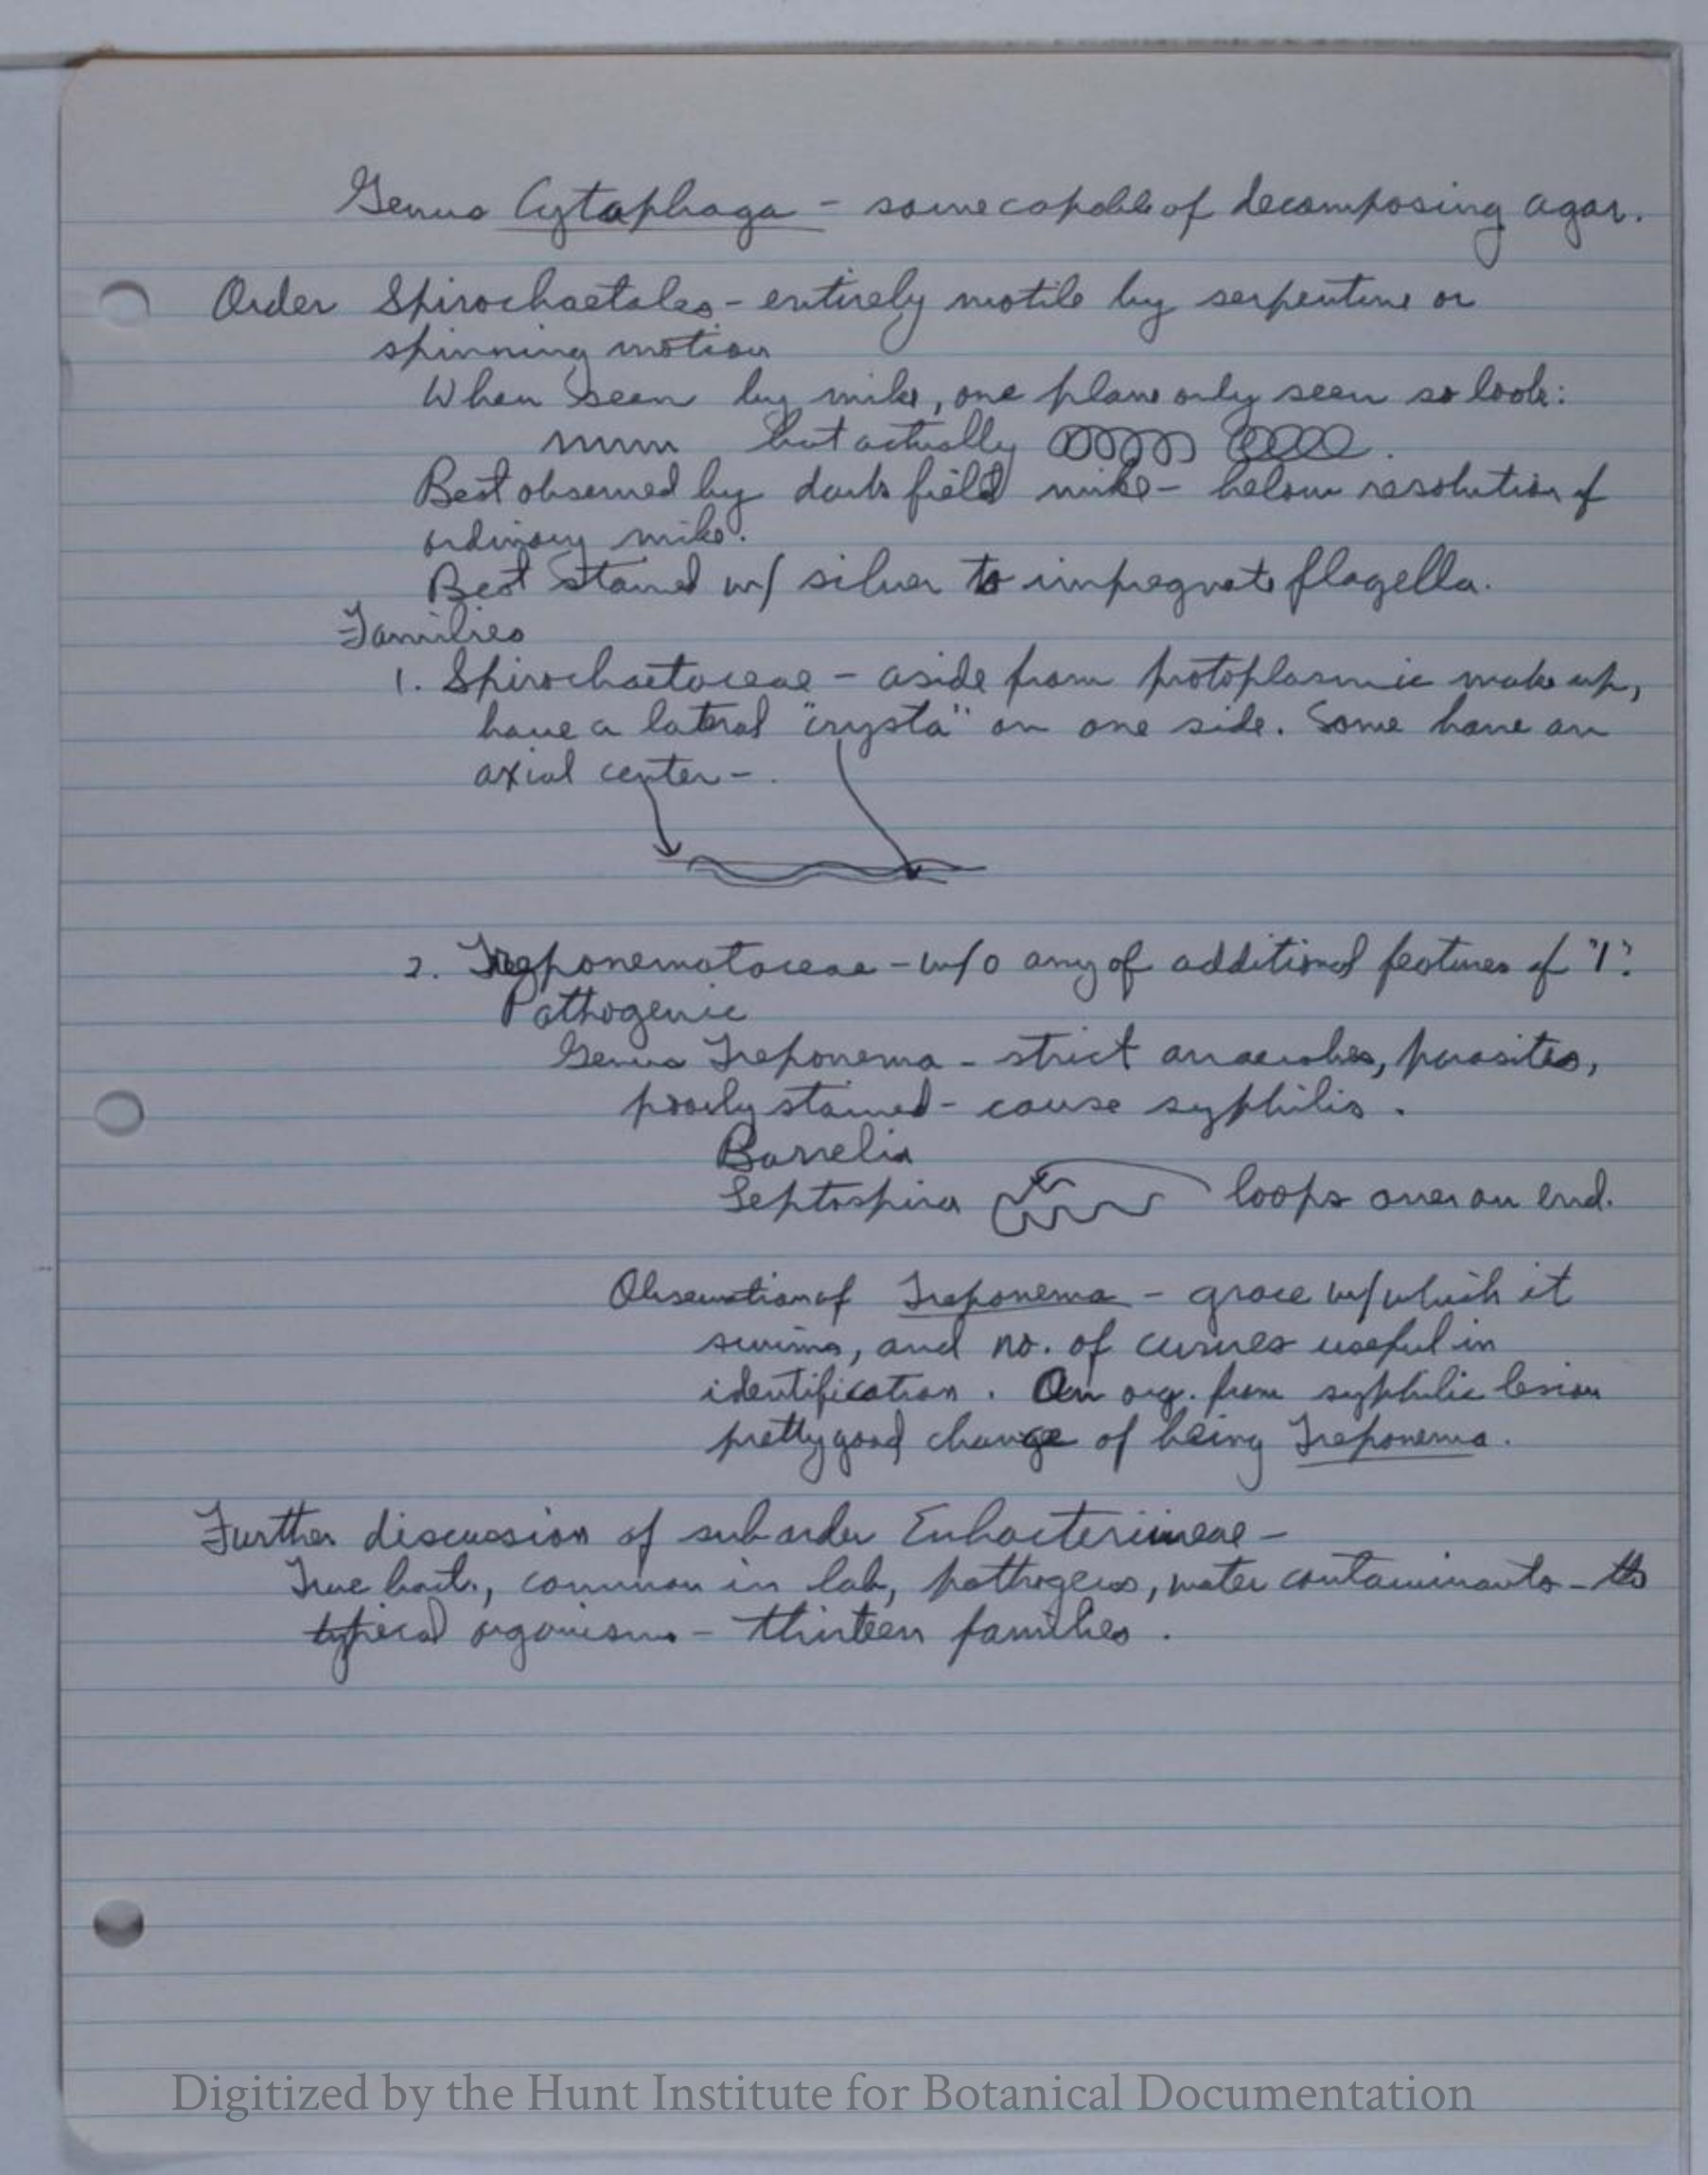 Genus Cytophaga - some capable of decomposing agar.
Order Spirochaetales - entirely motile by serpentine or
spinning motion
When seen by mike, one plane only seen so look:
but actually
Best observed by dark field mike - below resolution of
ordinary mike.
Best stained w/ silver to impregnate flagella.
Families
1. Spirochaetaceae - aside from protoplasmic make up,
have a lateral "crysta" on one side. Some have an
axial center -
2. Treponemataceae - w/o any of additional features of "1".
Pathogenic
Genus Treponema - strict anaerobes, parasites,
poorly stained - cause syphilis.
Borrelia
Leptospira loops over on end.
Observation of Treponema - grace w/ which it
swims, and no. of curves useful in
identification. An org. from syphilic lesion
pretty good change of being Treponema.
Further discussion of suborder Eubacteriineae -
True bact., common in lab, pathogens, water contaminants - the
typical organisms - thirteen families.
Digitized by the Hunt Institute for Botanical Documentation